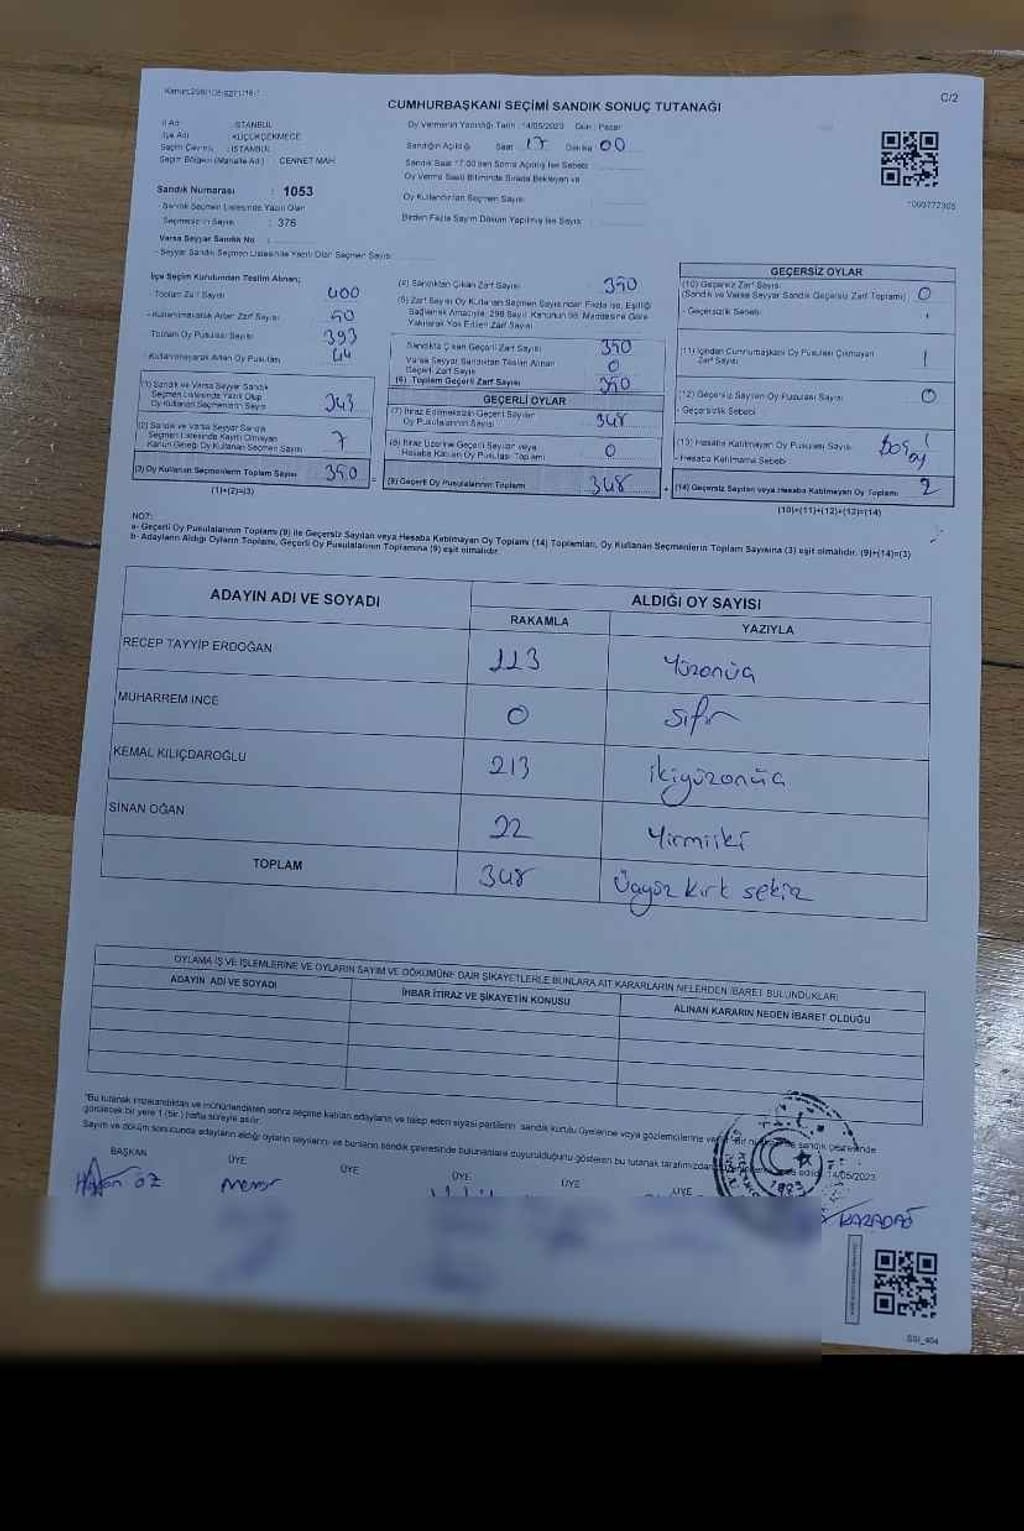 C/2
CUMHURBAŞKANI SEÇİMİ SANDIK SONUÇ TUTANAĞI
İl Adı : İSTANBUL
İlçe Adı : KÜÇÜKÇEKMECE
Seçim Çevresi : İSTANBUL
Seçim Bölgesi (Mahalle Adı) : CENNET MAH.
Sandık Numarası : 1053
- Sandık Seçmen Listesinde Yazılı Olan
Seçmenlerin Sayısı : 376
Varsa Seyyar Sandık No :
- Seyyar Sandık Seçmen Listesinde Yazılı Olan Seçmen Sayısı
Oy Vermenin Yapıldığı Tarih : 14/05/2023 Gün : Pazar
Sandığın Açıldığı Saat : 17 Dakika 00
Sandık Saat 17.00'den Sonra Açılmış İse Sebebi
Oy Verme Saati Bitiminde Sırada Bekleyen ve
Oy Kullandırılan Seçmen Sayısı
Birden Fazla Sayım Döküm Yapılmış İse Sayısı
İlçe Seçim Kurulundan Teslim Alınan;
- Toplam Zarf Sayısı 400
- Kullanılmayarak Artan Zarf Sayısı 50
Toplam Oy Pusulası Sayısı 393
- Kullanılmayarak Artan Oy Pusulası 44
(1) Sandık ve Varsa Seyyar Sandık
Seçmen Listesinde Yazılı Olup
Oy Kullanan Seçmenlerin Sayısı 343
(2) Sandık ve Varsa Seyyar Sandık
Seçmen Listesinde Kayıtlı Olmayan
Kanun Gereği Oy Kullanan Seçmen Sayısı 7
(3) Oy Kullanan Seçmenlerin Toplam Sayısı 350
(1)+(2)=(3)
(4) Sandıktan Çıkan Zarf Sayısı 350
(5) Zarf Sayısı Oy Kullanan Seçmen Sayısından Fazla ise, Eşitliği
Sağlamak Amacıyla, 298 Sayılı Kanunun 98. Maddesine Göre
Yakılarak Yok Edilen Zarf Sayısı
Sandıkta Çıkan Geçerli Zarf Sayısı 350
Varsa Seyyar Sandıktan Teslim Alınan
Geçerli Zarf Sayısı 0
(6) Toplam Geçerli Zarf Sayısı 350
GEÇERLİ OYLAR
(7) İtiraz Edilmeksizin Geçerli Sayılan
Oy Pusulalarının Sayısı 348
(8) İtiraz Üzerine Geçerli Sayılan veya
Hesaba Katılan Oy Pusulası Toplamı 0
(9) Geçerli Oy Pusulalarının Toplamı 348
GEÇERSİZ OYLAR
(10) Geçersiz Zarf Sayısı
(Sandık ve Varsa Seyyar Sandık Geçersiz Zarf Toplamı) 0
- Geçersizlik Sebebi
(11) İçinden Cumhurbaşkanı Oy Pusulası Çıkmayan
Zarf Sayısı 1
(12) Geçersiz Sayılan Oy Pusulası Sayısı 0
- Geçersizlik Sebebi
(13) Hesaba Katılmayan Oy Pusulası Sayısı 1
- Hesaba Katılmama Sebebi Boş oy
(14) Geçersiz Sayılan veya Hesaba Katılmayan Oy Toplamı 2
(10)+(11)+(12)+(13)=(14)
NOT:
a- Geçerli Oy Pusulalarının Toplamı (9) ile Geçersiz Sayılan veya Hesaba Katılmayan Oy Toplamı (14) Toplamları, Oy Kullanan Seçmenlerin Toplam Sayısına (3) eşit olmalıdır. (9)+(14)=(3)
b- Adayların Aldığı Oyların Toplamı, Geçerli Oy Pusulalarının Toplamına (9) eşit olmalıdır.
ADAYIN ADI VE SOYADI ALDIĞI OY SAYISI
RAKAMLA YAZIYLA
RECEP TAYYİP ERDOĞAN 113 Yüzonüç
MUHARREM İNCE 0 Sıfır
KEMAL KILIÇDAROĞLU 213 ikiyüzonüç
SİNAN OĞAN 22 Yirmiiki
TOPLAM 348 Üçyüz kırk sekiz
OYLAMA İŞ VE İŞLEMLERİNE VE OYLARIN SAYIM VE DÖKÜMÜNE DAİR ŞİKAYETLERLE BUNLARA AİT KARARLARIN NELERDEN İBARET BULUNDUKLARI
ADAYIN ADI VE SOYADI İHBAR İTİRAZ VE ŞİKAYETİN KONUSU ALINAN KARARIN NEDEN İBARET OLDUĞU
"Bu tutanak imzalandıktan ve mühürlendikten sonra seçime katılan adayların ve talep eden siyasi partilerin sandık kurulu üyelerine veya gözlemcilerine
görülecek bir yere 1 (bir) hafta süreyle asılır.
Sayım ve döküm sonucunda adayların aldığı oyların sayılarını ve bunların sandık çevresinde bulunanlara duyurulduğunu gösteren bu tutanak tarafımızdan 14/05/2023
BAŞKAN ÜYE ÜYE ÜYE ÜYE ÜYE
Hasan ÖZ
KARADAĞ
SSI_404